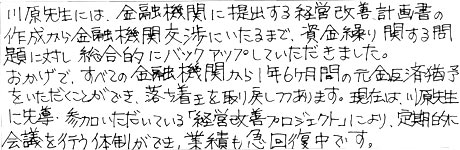 川原先生には、金融機関に提出する経営改善計画書の
作成から金融機関交渉にいたるまで、資金繰り関する問
題に対し総合的にバックアップしていただきました。
おかげで、すべての金融機関から1年6ヶ月間の元金返済猶予
をいただくことができ、落ち着きを取り戻しつつあります。現在は、川原先生
に先導・参加いただいている「経営改善プロジェクト」により、定期的に
会議を行う体制ができ、業績も急回復中です。